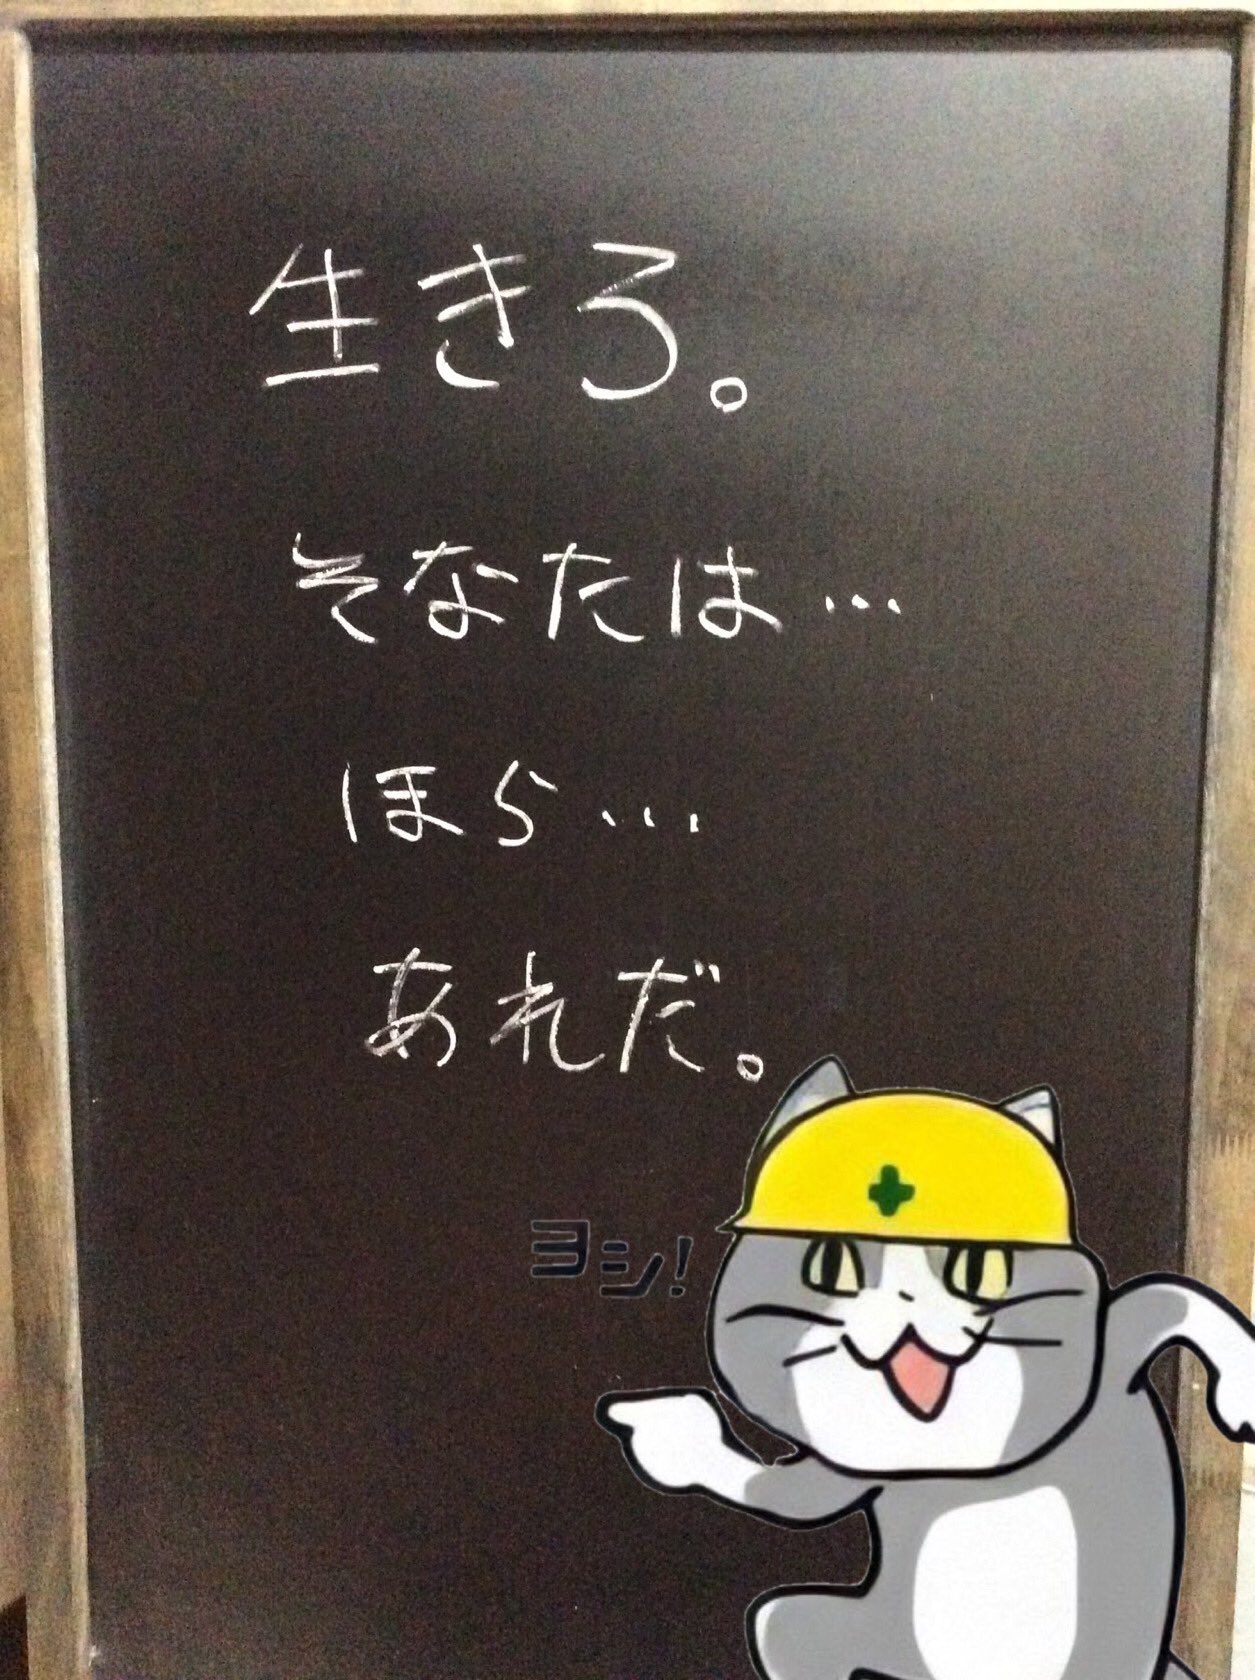 生きろ。
そなたは…
ほら…
あれだ。
ヨシ!